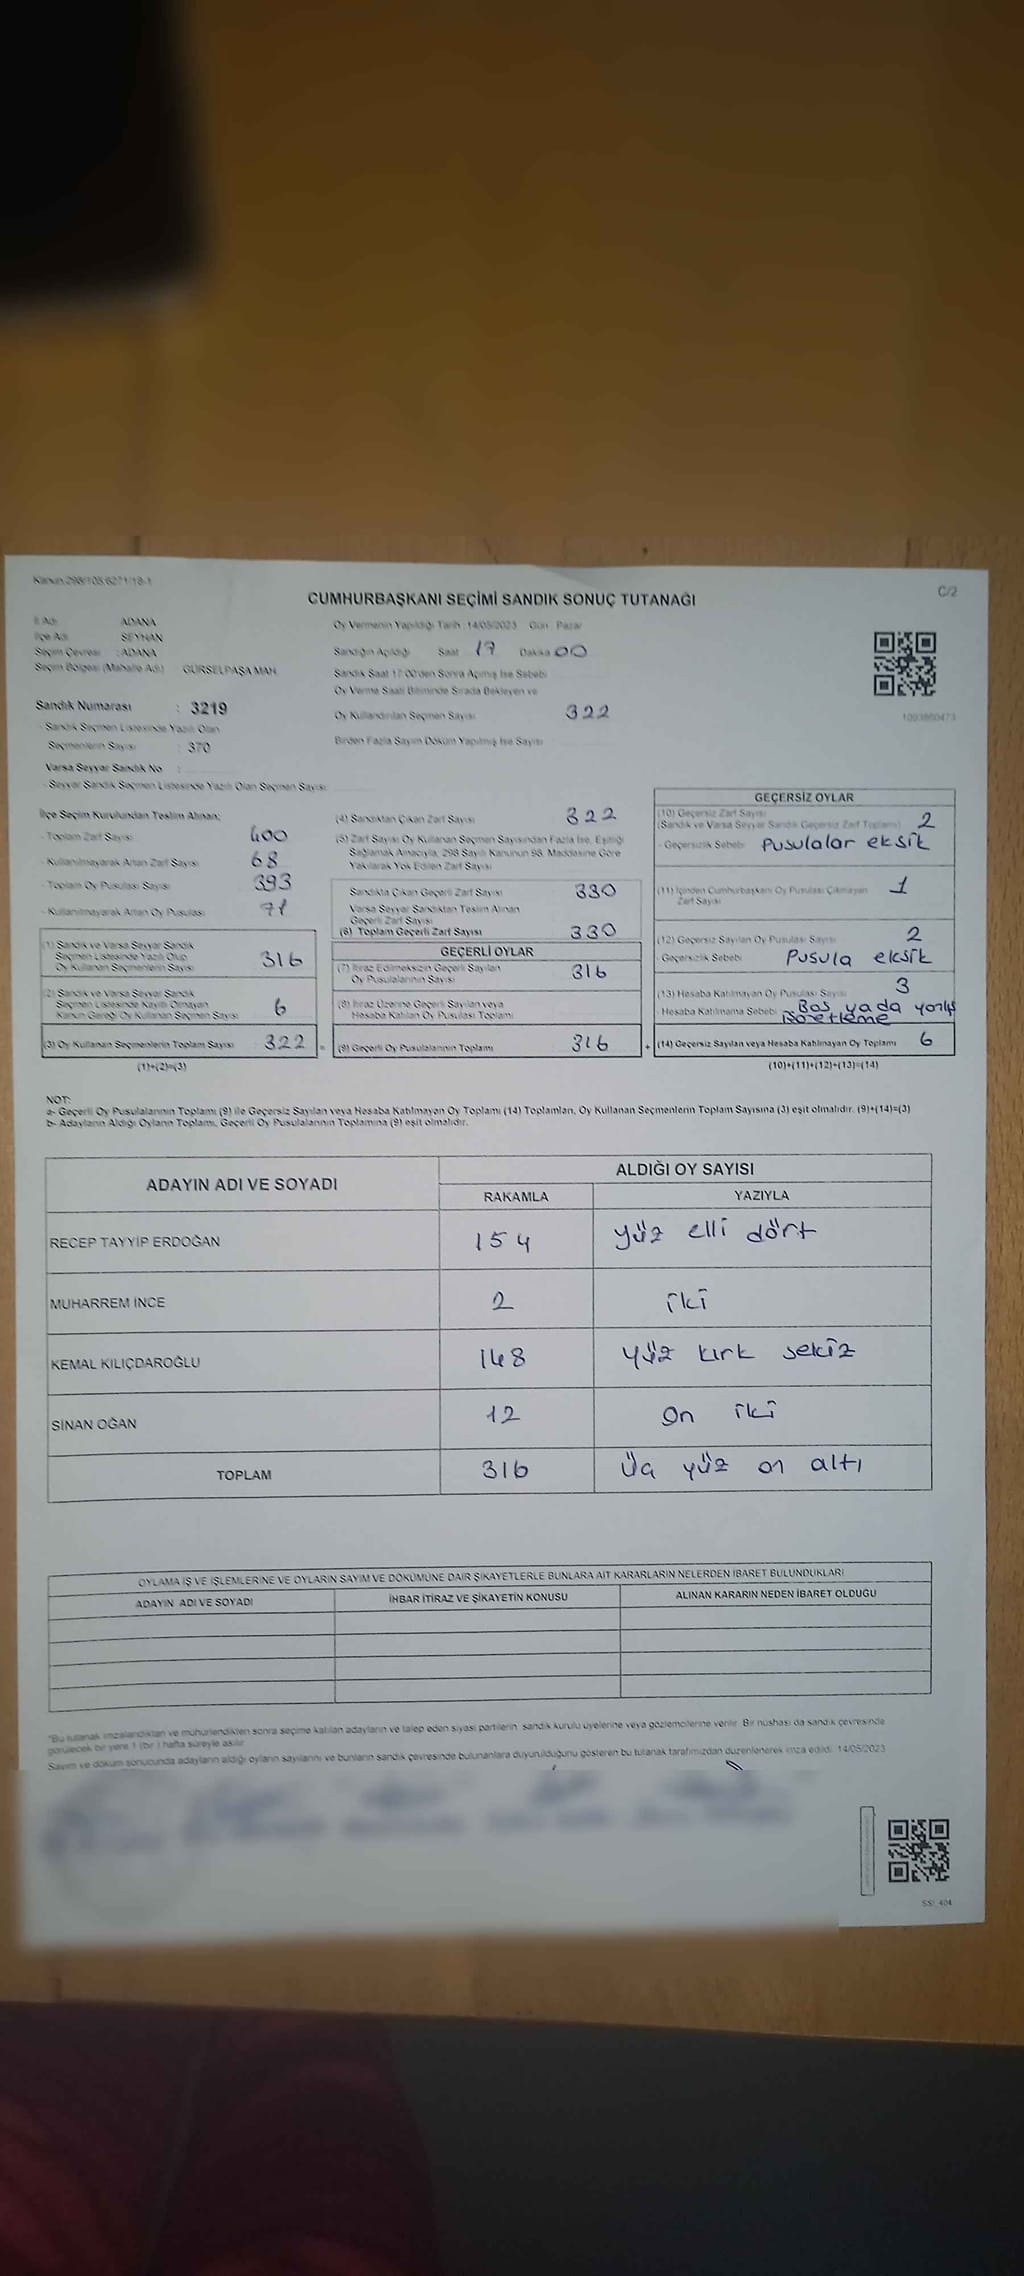 Kanun:298/105,6271/18-1
C/2
CUMHURBAŞKANI SEÇİMİ SANDIK SONUÇ TUTANAĞI
İl Adı ADANA
İlçe Adı SEYHAN
Seçim Çevresi : ADANA
Seçim Bölgesi (Mahalle Adı) GÜRSELPAŞA MAH.
Sandık Numarası : 3219
- Sandık Seçmen Listesinde Yazılı Olan
Seçmenlerin Sayısı : 370
Varsa Seyyar Sandık No :
- Seyyar Sandık Seçmen Listesinde Yazılı Olan Seçmen Sayısı
Oy Vermenin Yapıldığı Tarih : 14/05/2023 Gün : Pazar
Sandığın Açıldığı Saat 17 Dakika 00
Sandık Saat 17:00'den Sonra Açılmış İse Sebebi
Oy Verme Saati Bitiminde Sırada Bekleyen ve
Oy Kullandırılan Seçmen Sayısı 322
Birden Fazla Sayım Döküm Yapılmış İse Sayısı
1093860473
İlçe Seçim Kurulundan Teslim Alınan;
- Toplam Zarf Sayısı 400
- Kullanılmayarak Artan Zarf Sayısı 68
- Toplam Oy Pusulası Sayısı 393
- Kullanılmayarak Artan Oy Pusulası 71
(1) Sandık ve Varsa Seyyar Sandık
Seçmen Listesinde Yazılı Olup
Oy Kullanan Seçmenlerin Sayısı 316
(2) Sandık ve Varsa Seyyar Sandık
Seçmen Listesinde Kayıtlı Olmayan
Kanun Gereği Oy Kullanan Seçmen Sayısı 6
(3) Oy Kullanan Seçmenlerin Toplam Sayısı 322 =
(1)+(2)=(3)
(4) Sandıktan Çıkan Zarf Sayısı 322
(5) Zarf Sayısı Oy Kullanan Seçmen Sayısından Fazla İse, Eşitliği
Sağlamak Amacıyla, 298 Sayılı Kanunun 98. Maddesine Göre
Yakılarak Yok Edilen Zarf Sayısı
Sandıkta Çıkan Geçerli Zarf Sayısı 330
Varsa Seyyar Sandıktan Teslim Alınan
Geçerli Zarf Sayısı
(6) Toplam Geçerli Zarf Sayısı 330
GEÇERLİ OYLAR
(7) İtiraz Edilmeksizin Geçerli Sayılan
Oy Pusulalarının Sayısı 316
(8) İtiraz Üzerine Geçerli Sayılan veya
Hesaba Katılan Oy Pusulası Toplamı
(9) Geçerli Oy Pusulalarının Toplamı 316 +
GEÇERSİZ OYLAR
(10) Geçersiz Zarf Sayısı
(Sandık ve Varsa Seyyar Sandık Geçersiz Zarf Toplamı) 2
- Geçersizlik Sebebi Pusulalar eksik
(11) İçinden Cumhurbaşkanı Oy Pusulası Çıkmayan
Zarf Sayısı 1
(12) Geçersiz Sayılan Oy Pusulası Sayısı 2
- Geçersizlik Sebebi Pusula eksik
(13) Hesaba Katılmayan Oy Pusulası Sayısı 3
- Hesaba Katılmama Sebebi Boş yada yanlış
işaretleme
(14) Geçersiz Sayılan veya Hesaba Katılmayan Oy Toplamı 6
(10)+(11)+(12)+(13)=(14)
NOT:
a- Geçerli Oy Pusulalarının Toplamı (9) ile Geçersiz Sayılan veya Hesaba Katılmayan Oy Toplamı (14) Toplamları, Oy Kullanan Seçmenlerin Toplam Sayısına (3) eşit olmalıdır. (9)+(14)=(3)
b- Adayların Aldığı Oyların Toplamı, Geçerli Oy Pusulalarının Toplamına (9) eşit olmalıdır.
ADAYIN ADI VE SOYADI ALDIĞI OY SAYISI
RAKAMLA YAZIYLA
RECEP TAYYİP ERDOĞAN 154 yüz elli dört
MUHARREM İNCE 2 iki
KEMAL KILIÇDAROĞLU 148 yüz kırk sekiz
SİNAN OĞAN 12 on iki
TOPLAM 316 üç yüz on altı
OYLAMA İŞ VE İŞLEMLERİNE VE OYLARIN SAYIM VE DÖKÜMÜNE DAİR ŞİKAYETLERLE BUNLARA AİT KARARLARIN NELERDEN İBARET BULUNDUKLARI
ADAYIN ADI VE SOYADI İHBAR İTİRAZ VE ŞİKAYETİN KONUSU ALINAN KARARIN NEDEN İBARET OLDUĞU
*Bu tutanak imzalandıktan ve mühürlendikten sonra seçime katılan adayların ve talep eden siyasi partilerin sandık kurulu üyelerine veya gözlemcilerine verilir. Bir nüshası da sandık çevresinde
görülecek bir yere 1 (bir) hafta süreyle asılır.
Sayım ve döküm sonucunda adayların aldığı oyların sayılarını ve bunların sandık çevresinde bulunanlara duyurulduğunu gösteren bu tutanak tarafımızdan düzenlenerek imza edildi. 14/05/2023
SSI_404